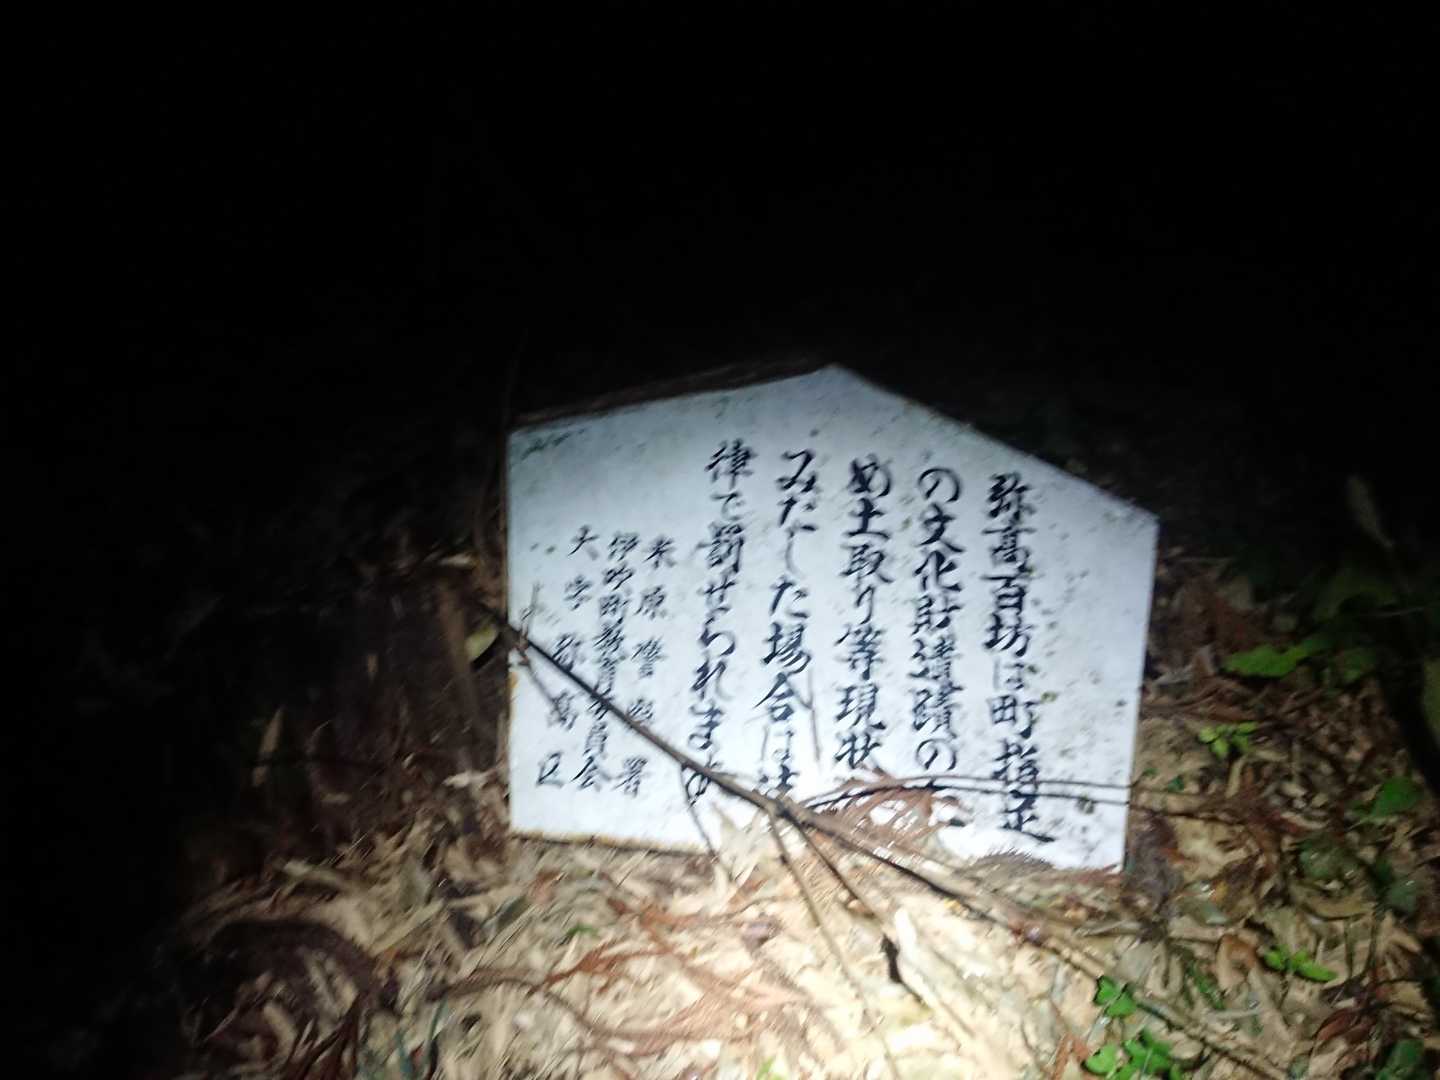 弥高百坊は町指定
の文化財遺蹟のた
め土取り等現状
みだした場合は法
律で罰せられます
米原警察署
伊吹町教育委員会
大字弥高区